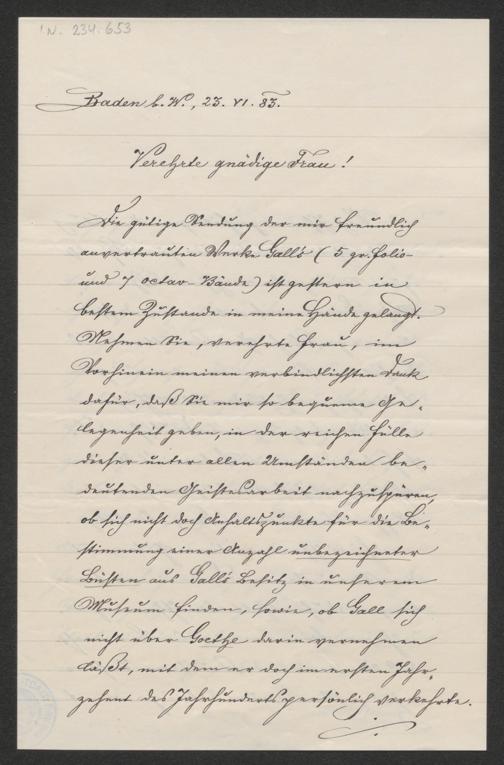 I.N. 234.653
Baden b. W., 23. VI. 83.
Verehrte gnädige Frau!
Die gütige Sendung der mir freundlich
anvertrauten Werke Gall's (5 gr. folio-
und 7 octav-Bände) ist gestern in
bestem Zustande in meine Hände gelangt.
Nehmen Sie, verehrte Frau, im
Vorhinein meinen verbindlichsten Dank
dafür, daß Sie mir so bequeme Ge-
legenheit geben, in der reichen Fülle
dieser unter allen Umständen be-
deutenden Geistesarbeit nachzuspüren,
ob sich nicht doch Anhaltspunkte für die Be-
stimmung einer Anzahl unbezeichneter
Büsten aus Gall's Besitz in unserem
Museum finden, sowie, ob Gall sich
nicht über Goethe darin vernehmen
läßt, mit dem er doch im ersten Jahr-
zehent des Jahrhunderts persönlich verkehrte.